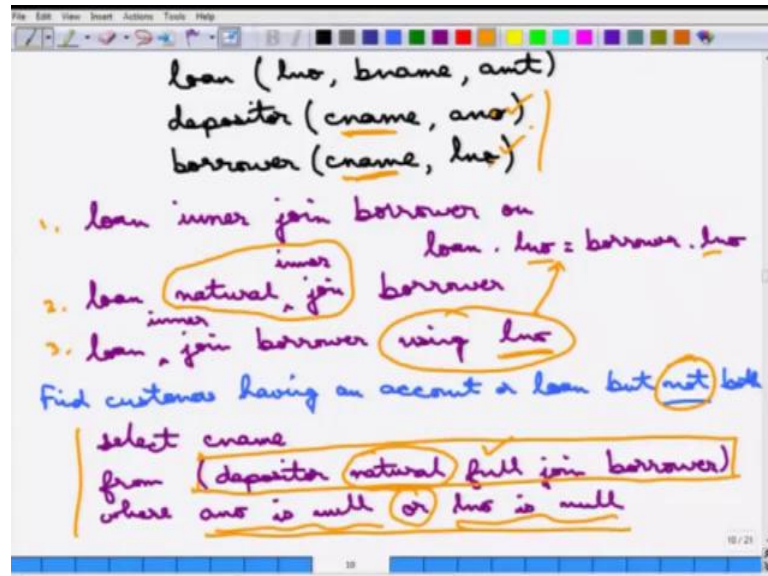 File Edit View Insert Actions Tools Help
loan (lno, bname, amt)
depositor (cname, ano)
borrower (cname, lno)
1. loan inner join borrower on
loan . lno = borrower . lno
inner
2. loan natural join borrower
inner
3. loan join borrower using lno
Find customers having an account or loan but not both
select cname
from (depositor natural full join borrower)
where ano is null or lno is null
10 / 21
10